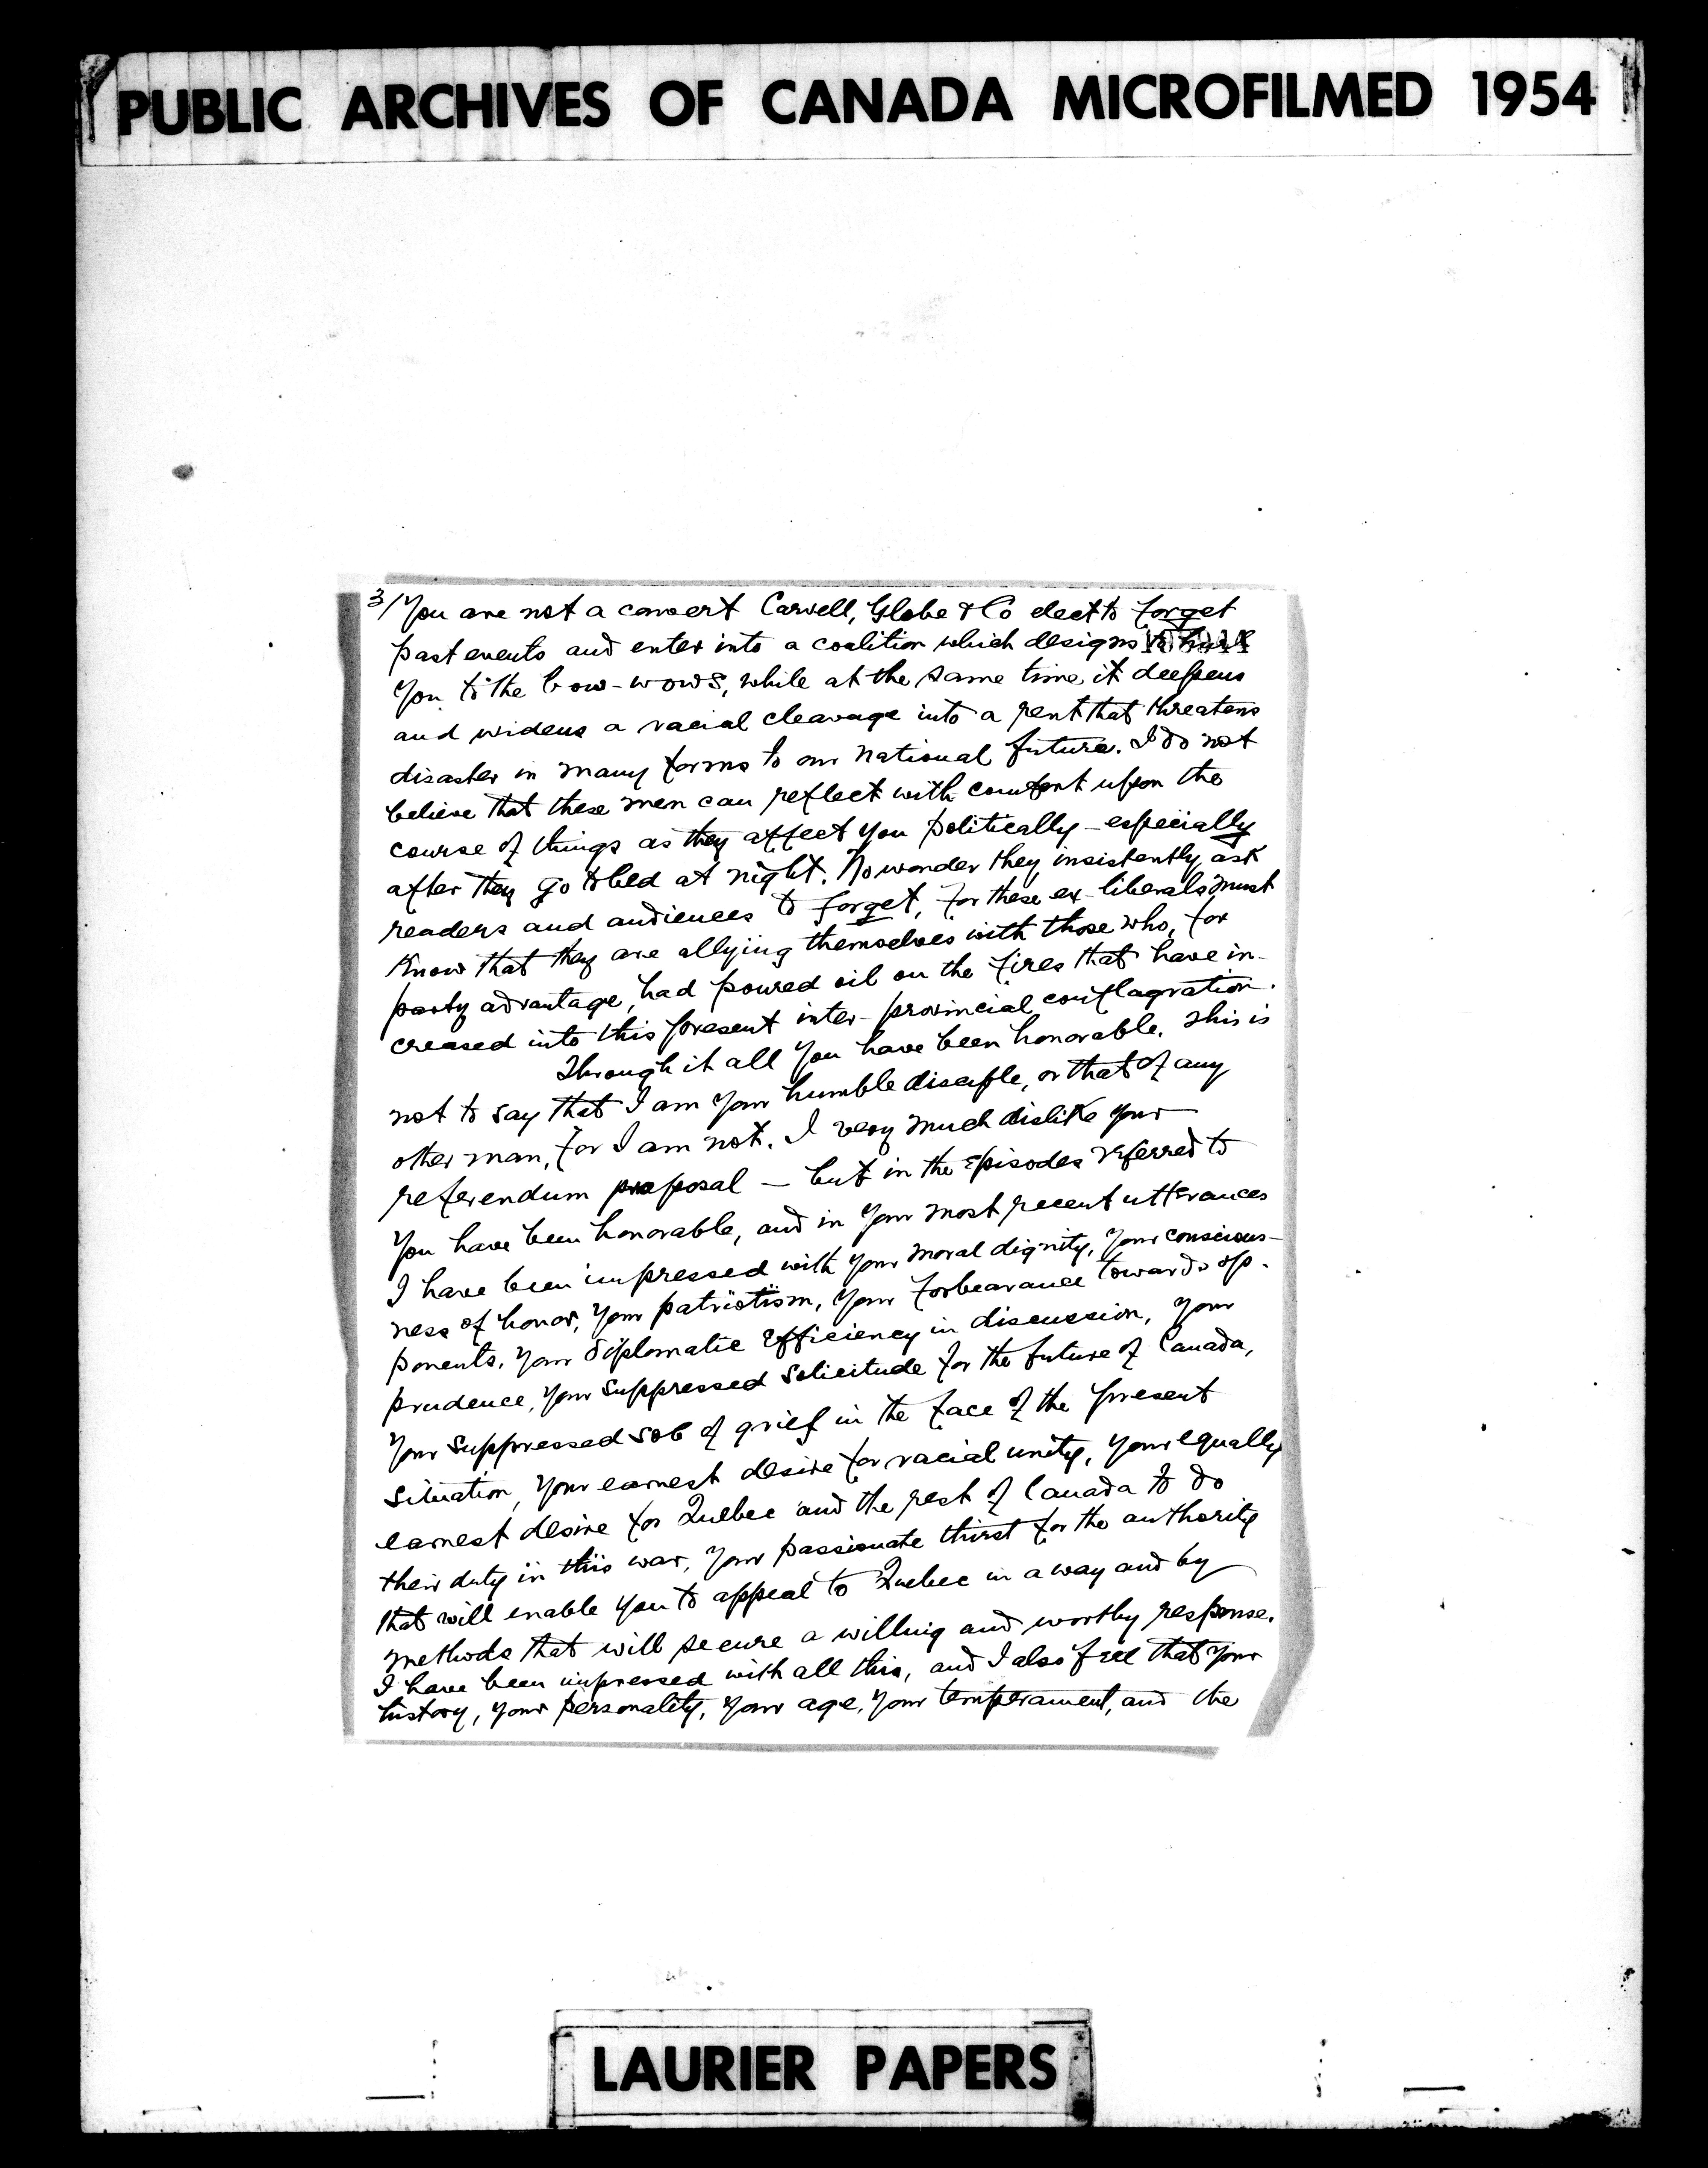 PUBLIC ARCHIVES OF CANADA MICROFILMED 1954
3/ You are not a convert Carvell, Globe & Co elect to forget
past events and enter into a coalition which designs to
you to the bow-wows, while at the same time it deepens
and widens a racial cleavage into a rent that threatens
disaster in many forms to our national future. I do not
believe that these men can reflect with comfort upon the
course of things as they affect you politically - especially
after they go to bed at night. No wonder they insistently ask
readers and audiences to forget, for these ex-liberals must
know that they are allying themselves with those who, for
party advantage, had poured oil on the fires that have in-
creased into this present inter-provincial conflagration.
Through it all you have been honorable. This is
not to say that I am your humble disciple, or that of any
other man, for I am not. I very much dislike your
referendum proposal — but in the episodes referred to
you have been honorable, and in your most recent utterances
I have been impressed with your moral dignity, your conscious-
ness of honor, your patriotism, your forbearance towards op-
ponents, your diplomatic efficiency in discussion, your
prudence, your suppressed solicitude for the future of Canada,
your suppressed sob of grief in the face of the present
situation, your earnest desire for racial unity, your equally
earnest desire for Quebec and the rest of Canada to do
their duty in this war, your passionate thirst for the authority
that will enable you to appeal to Quebec in a way and by
methods that will secure a willing and worthy response.
I have been impressed with all this, and I also feel that your
history, your personality, your age, your temperament, and the
LAURIER PAPERS